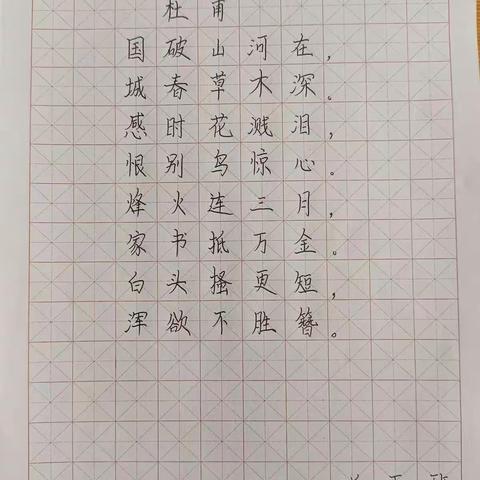 杜甫
国破山河在，
城春草木深。
感时花溅泪，
恨别鸟惊心。
烽火连三月，
家书抵万金。
白头搔更短，
浑欲不胜簪。